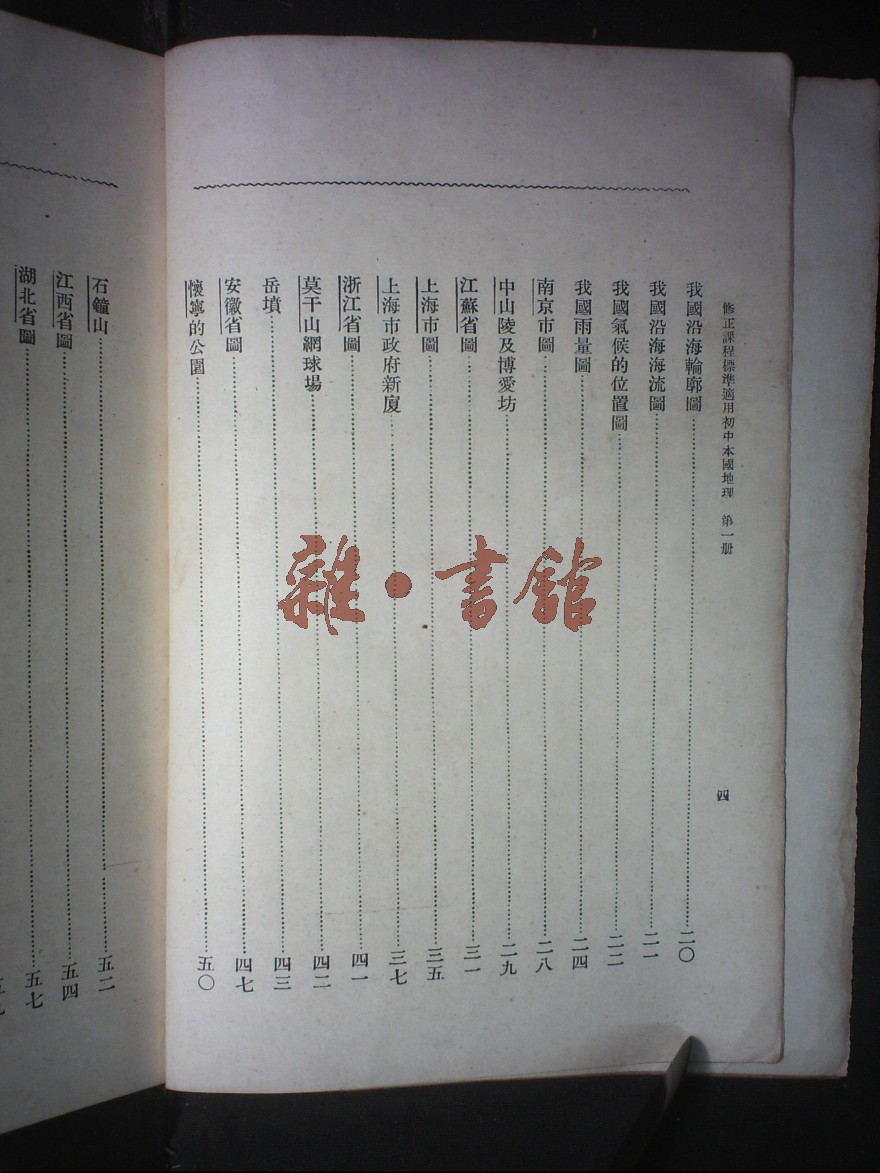 修正課程標準適用初中本國地理 第一册
四
我國沿海輪廓圖⋯⋯二〇
我國沿海海流圖⋯⋯二一
我國氣候的位置圖⋯⋯二二
我國雨量圖⋯⋯二四
南京市圖⋯⋯二八
中山陵及博愛坊⋯⋯二九
江蘇省圖⋯⋯三一
上海市圖⋯⋯三五
上海市政府新廈⋯⋯三七
浙江省圖⋯⋯四一
莫干山網球場⋯⋯四二
岳墳⋯⋯四三
安徽省圖⋯⋯四七
懷寧的公園⋯⋯五〇
石鐘山⋯⋯五二
江西省圖⋯⋯五四
湖北省圖⋯⋯五七
雜·書館